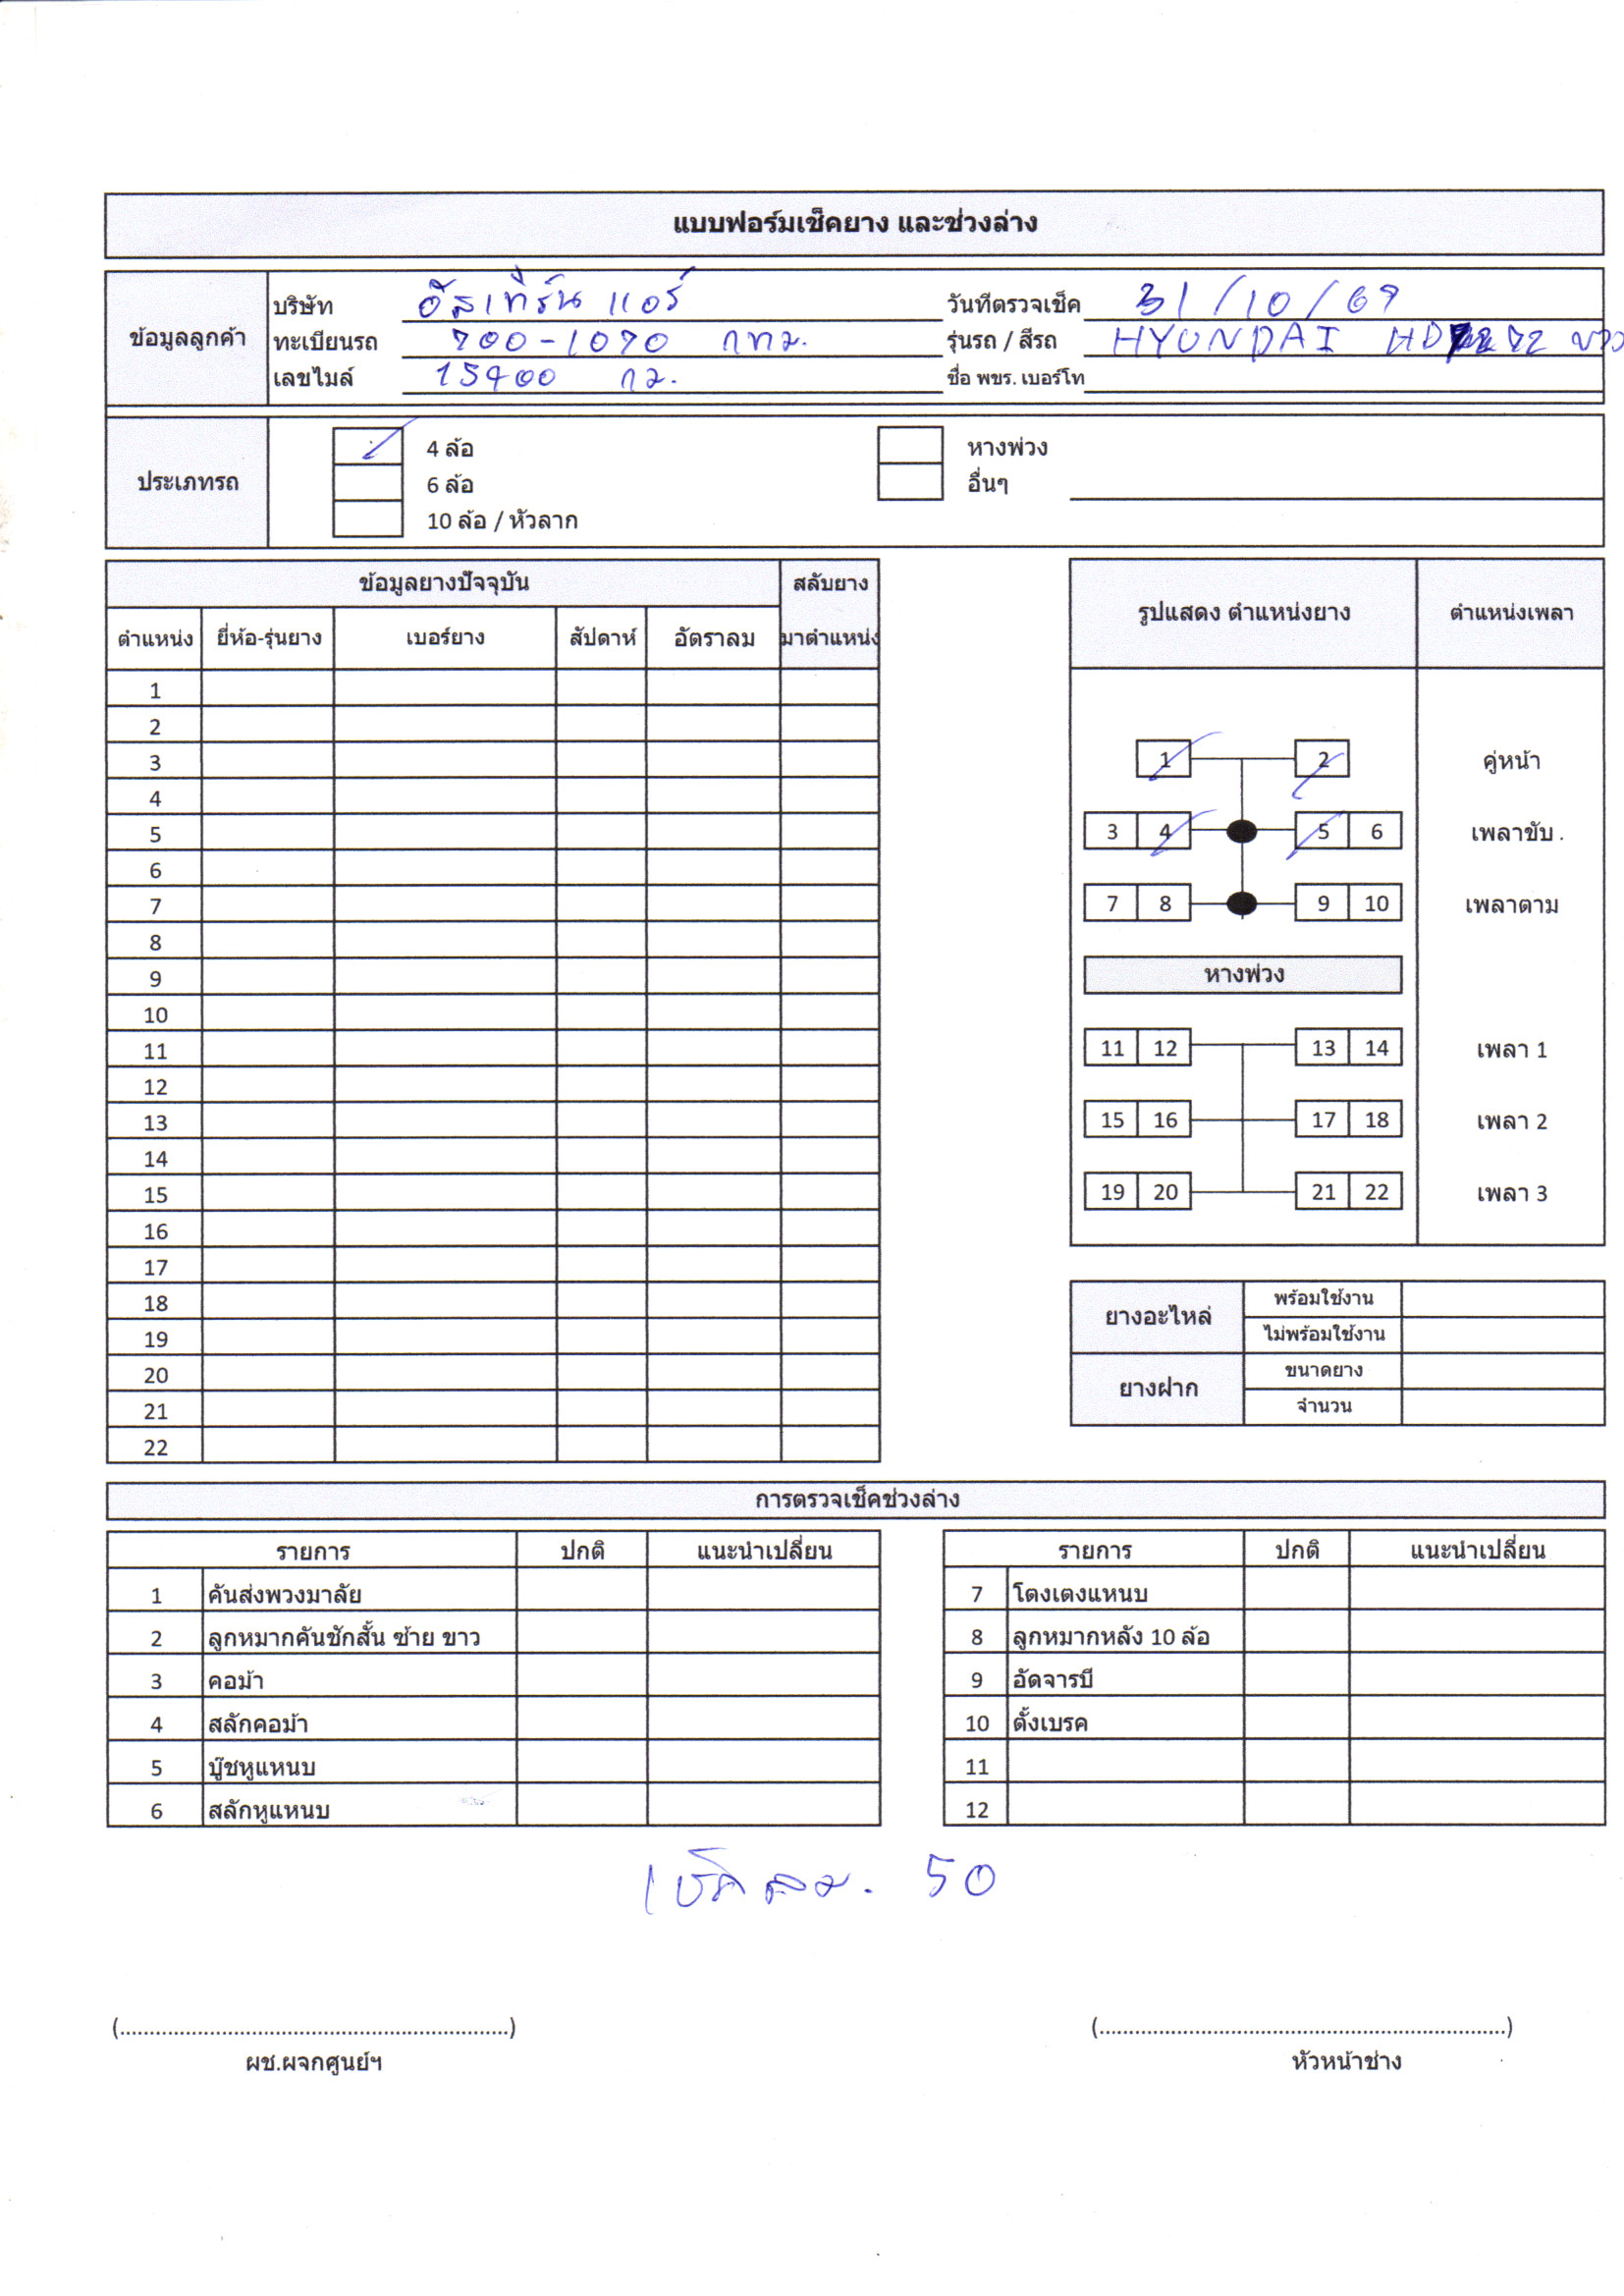 แบบฟอร์มเช็คยาง และช่วงล่าง
ข้อมูลลูกค้า
บริษัท อีสเทิร์น แอร์ วันที่ตรวจเช็ค 31/10/67
ทะเบียนรถ 700-1070 กทม. รุ่นรถ / สีรถ HYUNDAI HD 72 ขาว
เลขไมล์ 15900 กม. ชื่อ พขร. เบอร์โท
ประเภทรถ
4 ล้อ หางพ่วง
6 ล้อ อื่นๆ
10 ล้อ / หัวลาก
ข้อมูลยางปัจจุบัน สลับยาง
ตำแหน่ง ยี่ห้อ-รุ่นยาง เบอร์ยาง สัปดาห์ อัตราลม มาตำแหน่ง
1
2
3
4
5
6
7
8
9
10
11
12
13
14
15
16
17
18
19
20
21
22
รูปแสดง ตำแหน่งยาง ตำแหน่งเพลา
1 2 คู่หน้า
3 4 5 6 เพลาขับ .
7 8 9 10 เพลาตาม
หางพ่วง
11 12 13 14 เพลา 1
15 16 17 18 เพลา 2
19 20 21 22 เพลา 3
ยางอะไหล่ พร้อมใช้งาน
ไม่พร้อมใช้งาน
ยางฝาก ขนาดยาง
จำนวน
การตรวจเช็คช่วงล่าง
รายการ ปกติ แนะนำเปลี่ยน
1 คันส่งพวงมาลัย
2 ลูกหมากคันชักสั้น ซ้าย ขาว
3 คอม้า
4 สลักคอม้า
5 บู๊ชหูแหนบ
6 สลักหูแหนบ
รายการ ปกติ แนะนำเปลี่ยน
7 โตงเตงแหนบ
8 ลูกหมากหลัง 10 ล้อ
9 อัดจารบี
10 ตั้งเบรค
11
12
เช็คลม. 50
(..................................................................) (.....................................................................)
ผช.ผจกศูนย์ฯ หัวหน้าช่าง